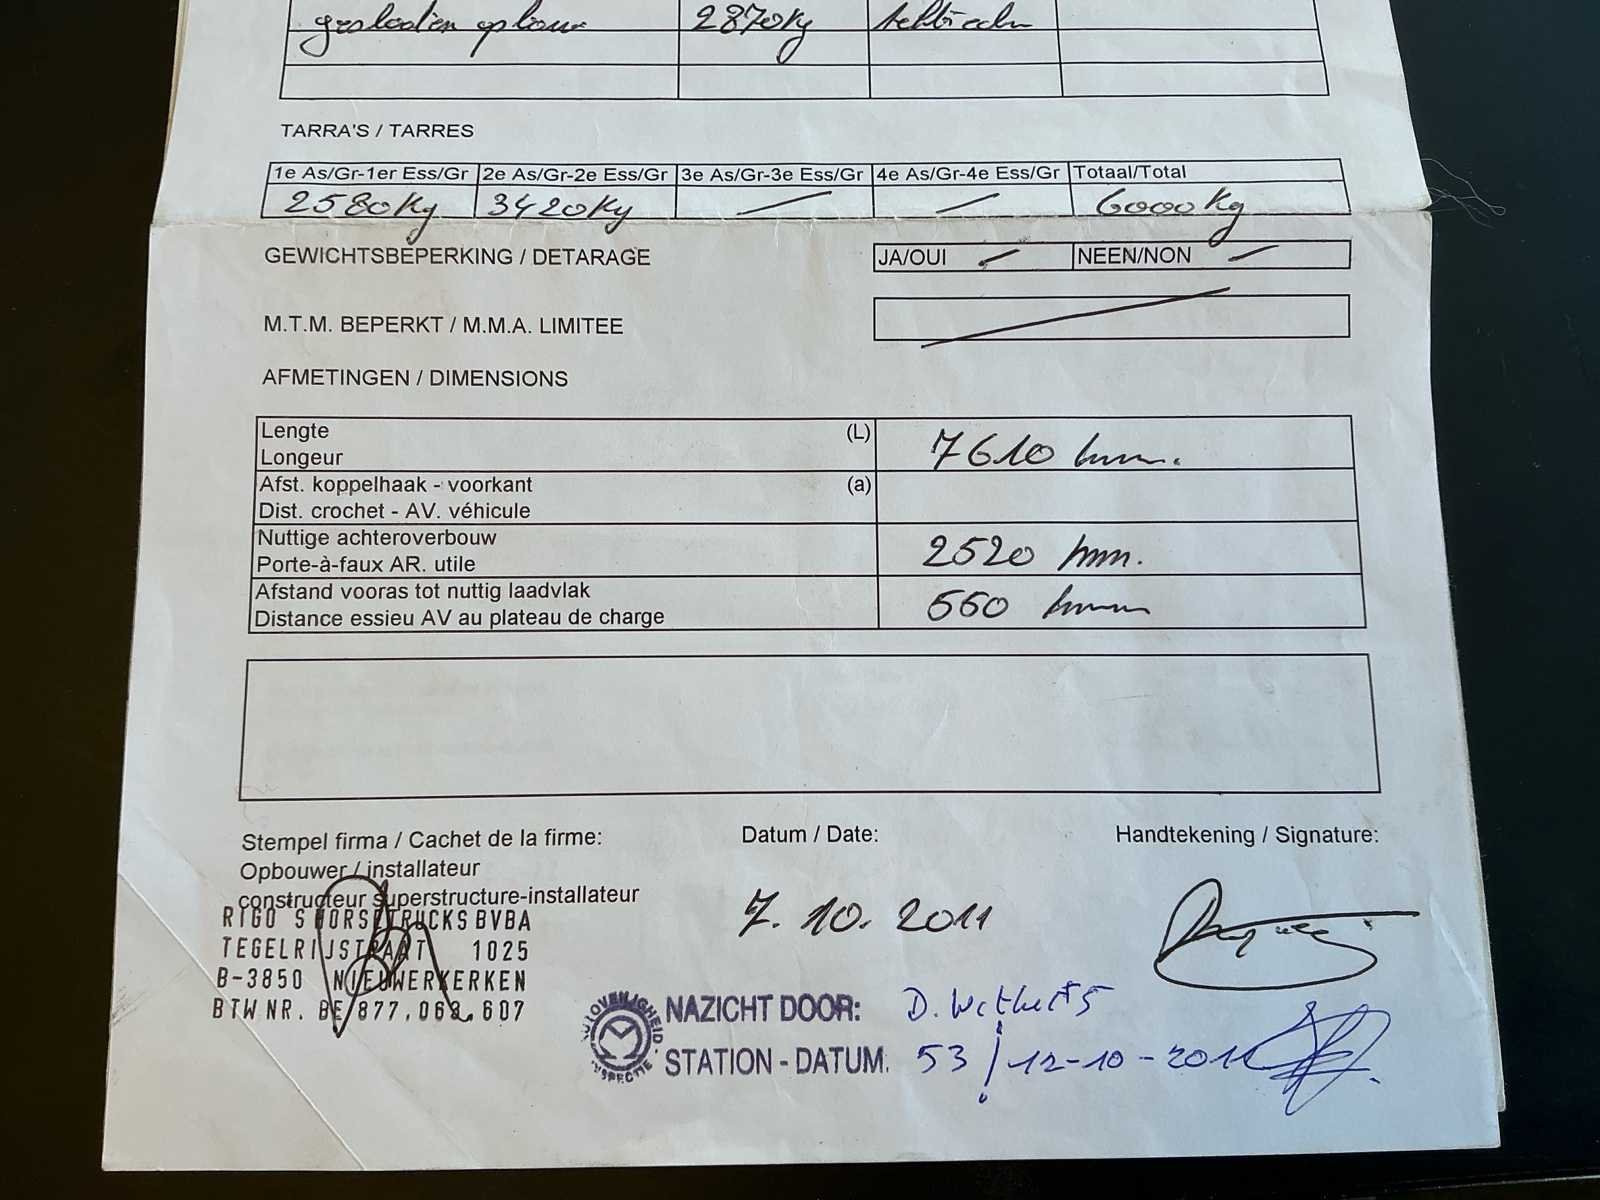 gesloten opbouw 2870Kg
TARRA'S / TARRES
1e As/Gr-1er Ess/Gr 2e As/Gr-2e Ess/Gr 3e As/Gr-3e Ess/Gr 4e As/Gr-4e Ess/Gr Totaal/Total
2580Kg 3420Kg 6000Kg
GEWICHTSBEPERKING / DETARAGE JA/OUI NEEN/NON
M.T.M. BEPERKT / M.M.A. LIMITEE
AFMETINGEN / DIMENSIONS
Lengte (L)
Longeur
7610 mm.
Afst. koppelhaak - voorkant (a)
Dist. crochet - AV. véhicule
Nuttige achteroverbouw
Porte-à-faux AR. utile
2520 mm.
Afstand vooras tot nuttig laadvlak
Distance essieu AV au plateau de charge
550 mm
Stempel firma / Cachet de la firme: Datum / Date: Handtekening / Signature:
Opbouwer / installateur
constructeur superstructure-installateur
RIGO'S HORSETRUCKS BVBA
TEGELRIJSTRAAT 1025
B-3850 NIEUWERKERKEN
BTW NR. BE/877.068.607
7.10.2011
AUTOVEILIGHEID
INSPECTIE
NAZICHT DOOR:
STATION - DATUM. 53 / 12-10-2011